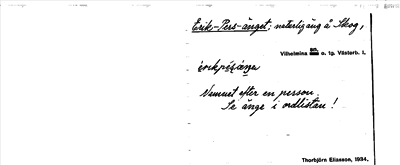 Erik-Pers-änget: naturligäng å Skog,
Vilhelmina sn. o. tg. Västerb. l.
Namnet efter en person.
Se änge i ordlistan!
Thorbjörn Eliasson, 1934.